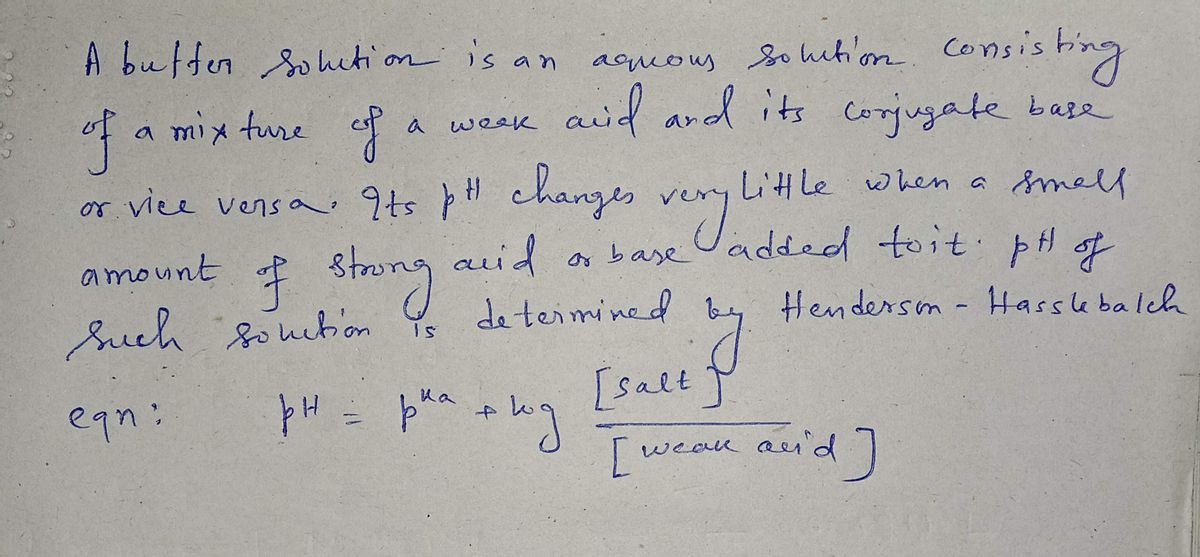 A buffer solution is an aqueous solution consisting
of a mixture of a weak acid and its conjugate base
or vice versa. Its pH changes very little when a small
amount of strong acid or base added to it. pH of
such solution is determined by Henderson - Hasslebalch
eqn: pH = pKa + log [salt]
[weak acid]